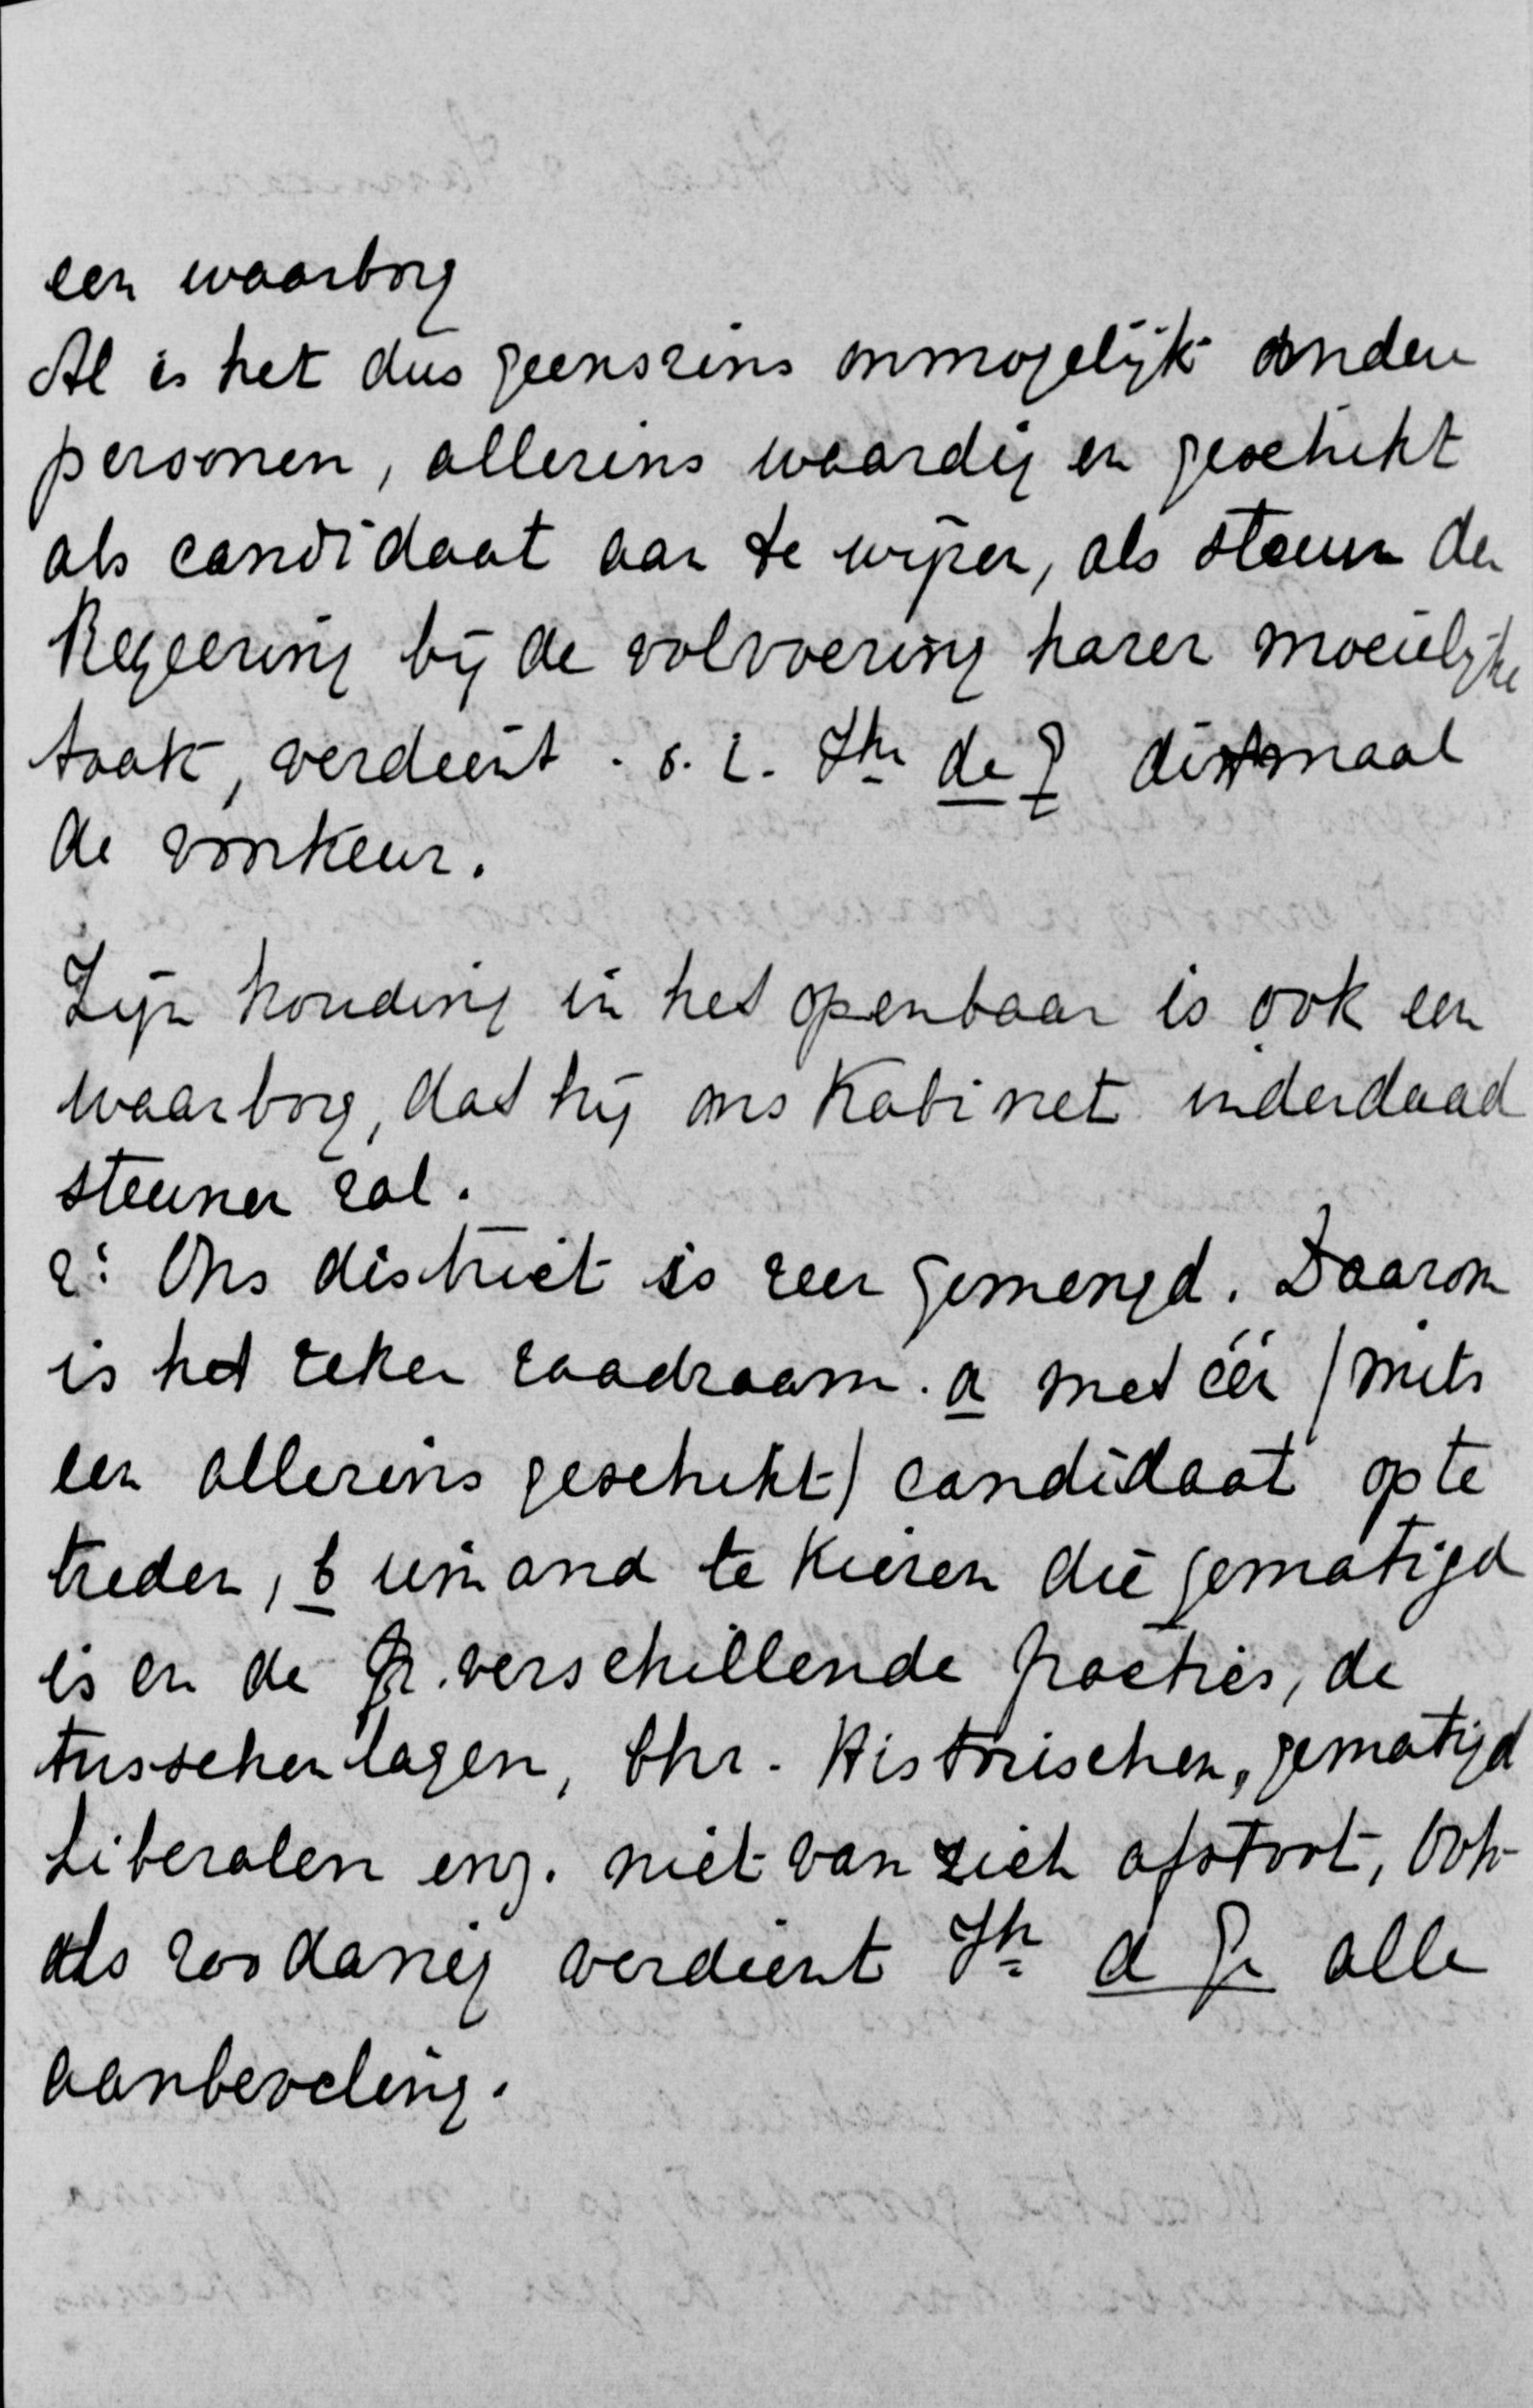 een waarborg
Al is het dus geenszins onmogelijk andere
personen, alleszins waardig en geschikt
als candidaat aan te wijzen, als steun der
Regeering bij de volvoering harer moeielijke
taak, verdient . s. i. Jhr de G ditmaal
de voorkeur.
Zijn houding in het openbaar is ook een
waarborg, dat hij ons Kabinet inderdaad
steunen zal.
2: Ons district is zeer gemengd. Daarom
is het zeker raadzaam. a met één (mits
een alleszins geschikt) candidaat op te
treden, b iemand te kiezen die gematigd
is en de verschillende fracties, de
tusschenlagen, Chr. Historischen, gematigd
Liberalen enz. niet van zich afstoot, Ook
als zoodanig verdient Jhr d G alle
aanbeveling.